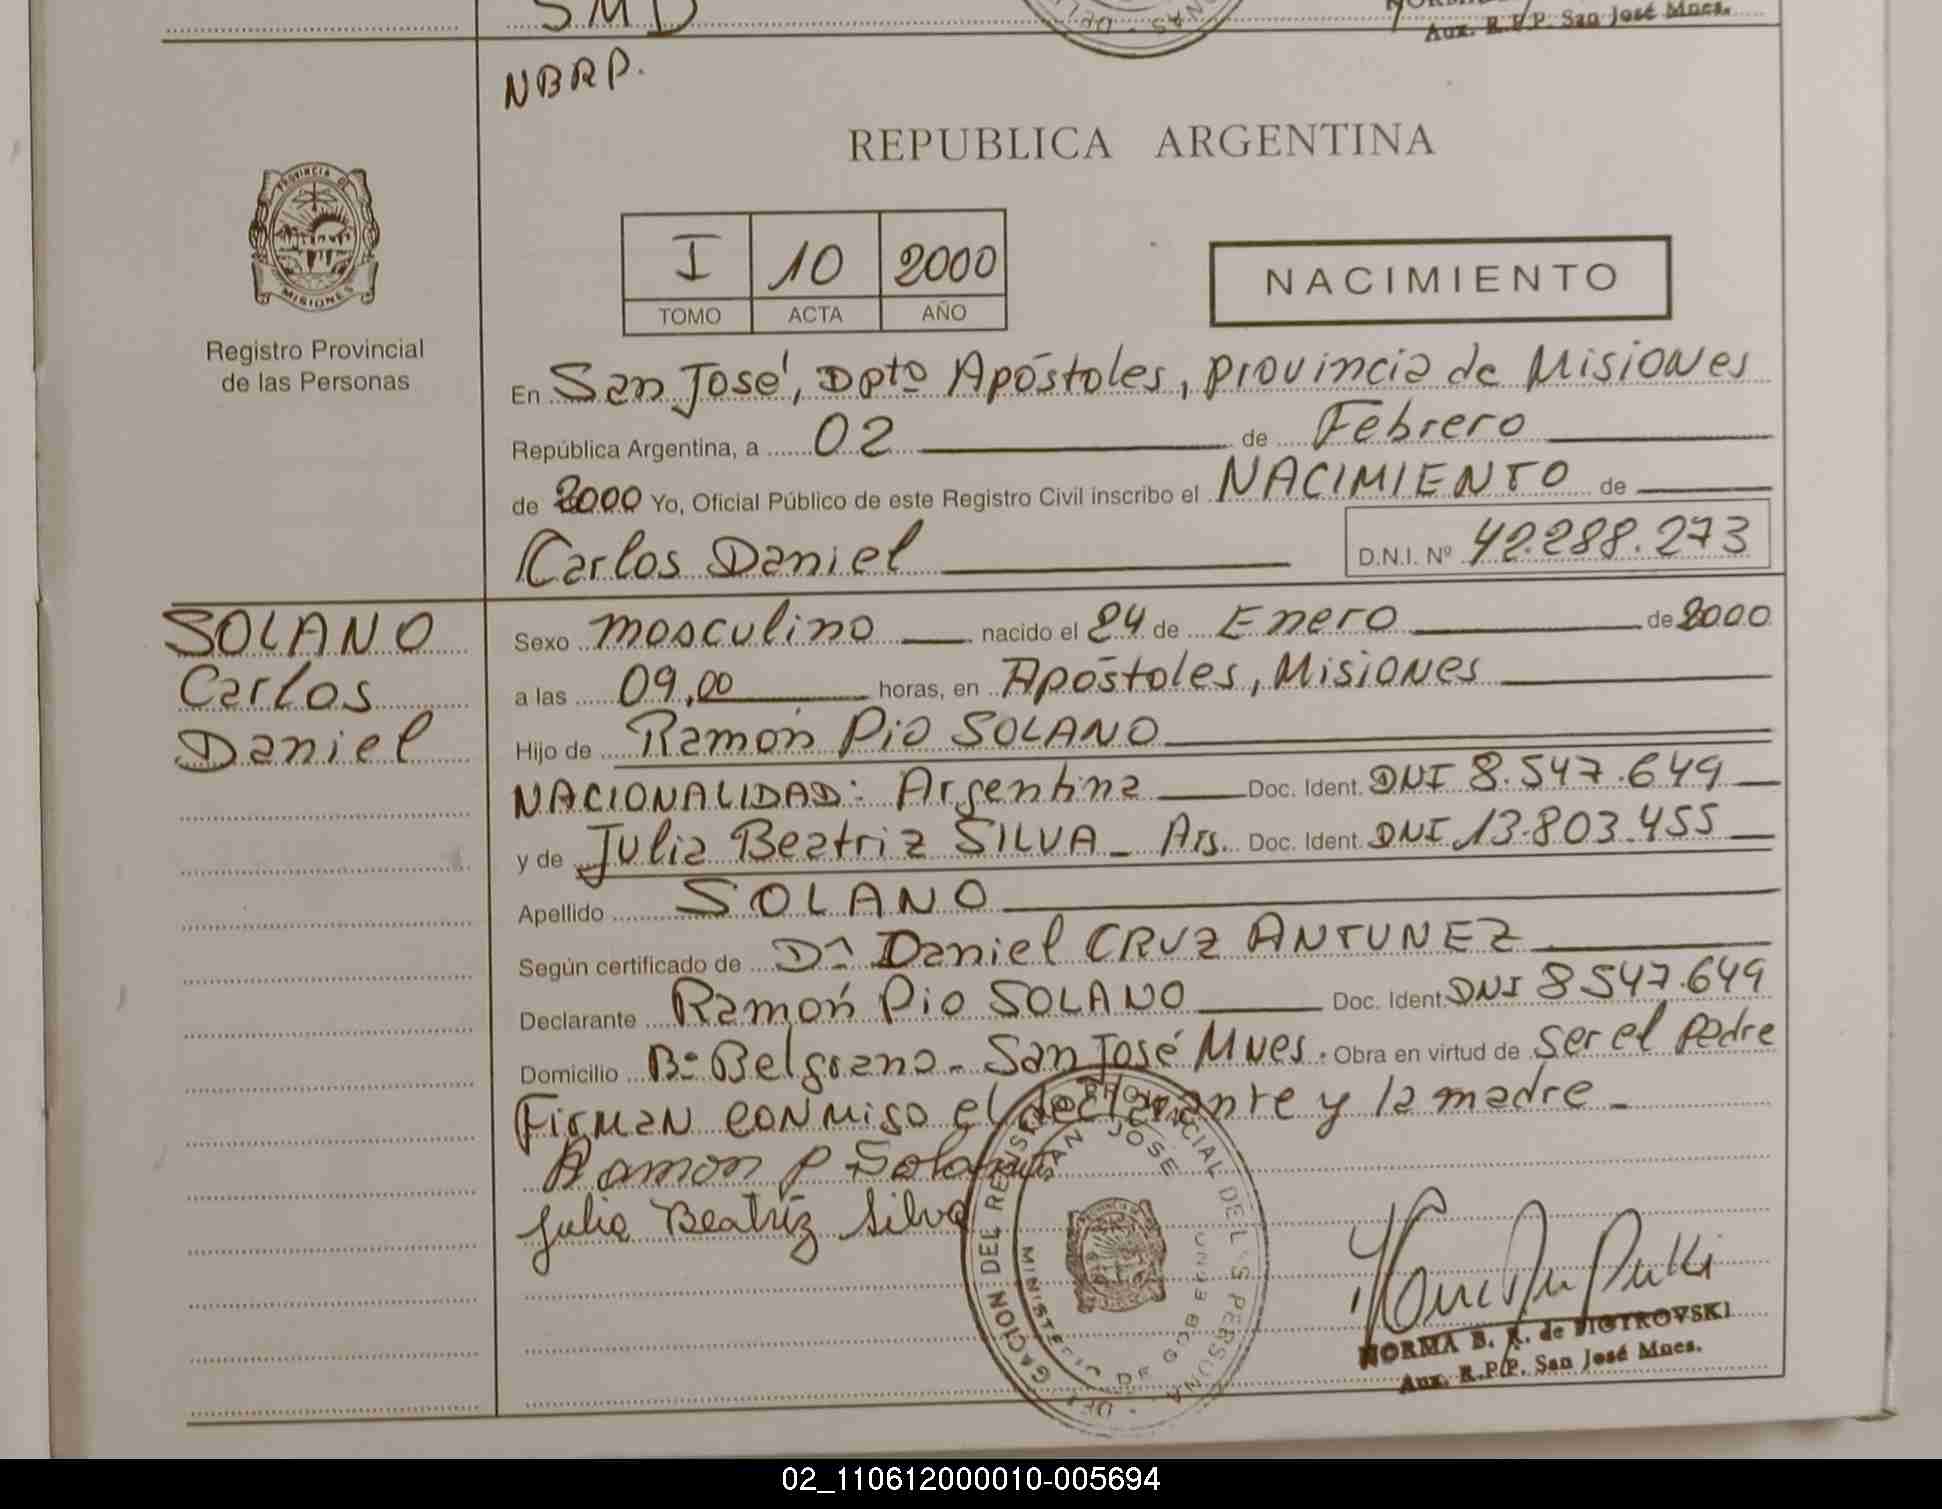 SMD
Aux. R.P.P. San José Mnes.
NBRP.
REPUBLICA ARGENTINA
PROVINCIA DE
MISIONES
Registro Provincial
de las Personas
I 10 2000
TOMO ACTA AÑO
NACIMIENTO
En San José, Dpto Apóstoles, provincia de Misiones
República Argentina, a 02 de Febrero
de 2000 Yo, Oficial Público de este Registro Civil inscribo el NACIMIENTO de
Carlos Daniel D.N.I. Nº 42.288.273
SOLANO
Carlos
Daniel
Sexo masculino nacido el 24 de Enero de 2000
a las 09,00 horas, en Apóstoles, Misiones
Hijo de Ramón Pio SOLANO
NACIONALIDAD: Argentina Doc. Ident. DNI 8.547.649
y de Julia Beatriz SILVA - Arg. Doc. Ident. DNI 13.803.455
Apellido SOLANO
Según certificado de Dr. Daniel CRUZ ANTUNEZ
Declarante Ramón Pio SOLANO Doc. Ident. DNI 8547.649
Domicilio Bº Belgrano - San José Mnes. Obra en virtud de ser el padre
Firman conmigo el declarante y la madre -
Ramon P Solano
Julia Beatriz Silva
DELEGACION DEL REGISTRO PROVINCIAL DE LAS PERSONAS
SAN JOSE
MINISTERIO DE GOBIERNO
NORMA B. R. de PIOTROVSKI
Aux. R.P.P. San José Mnes.
02_110612000010-005694